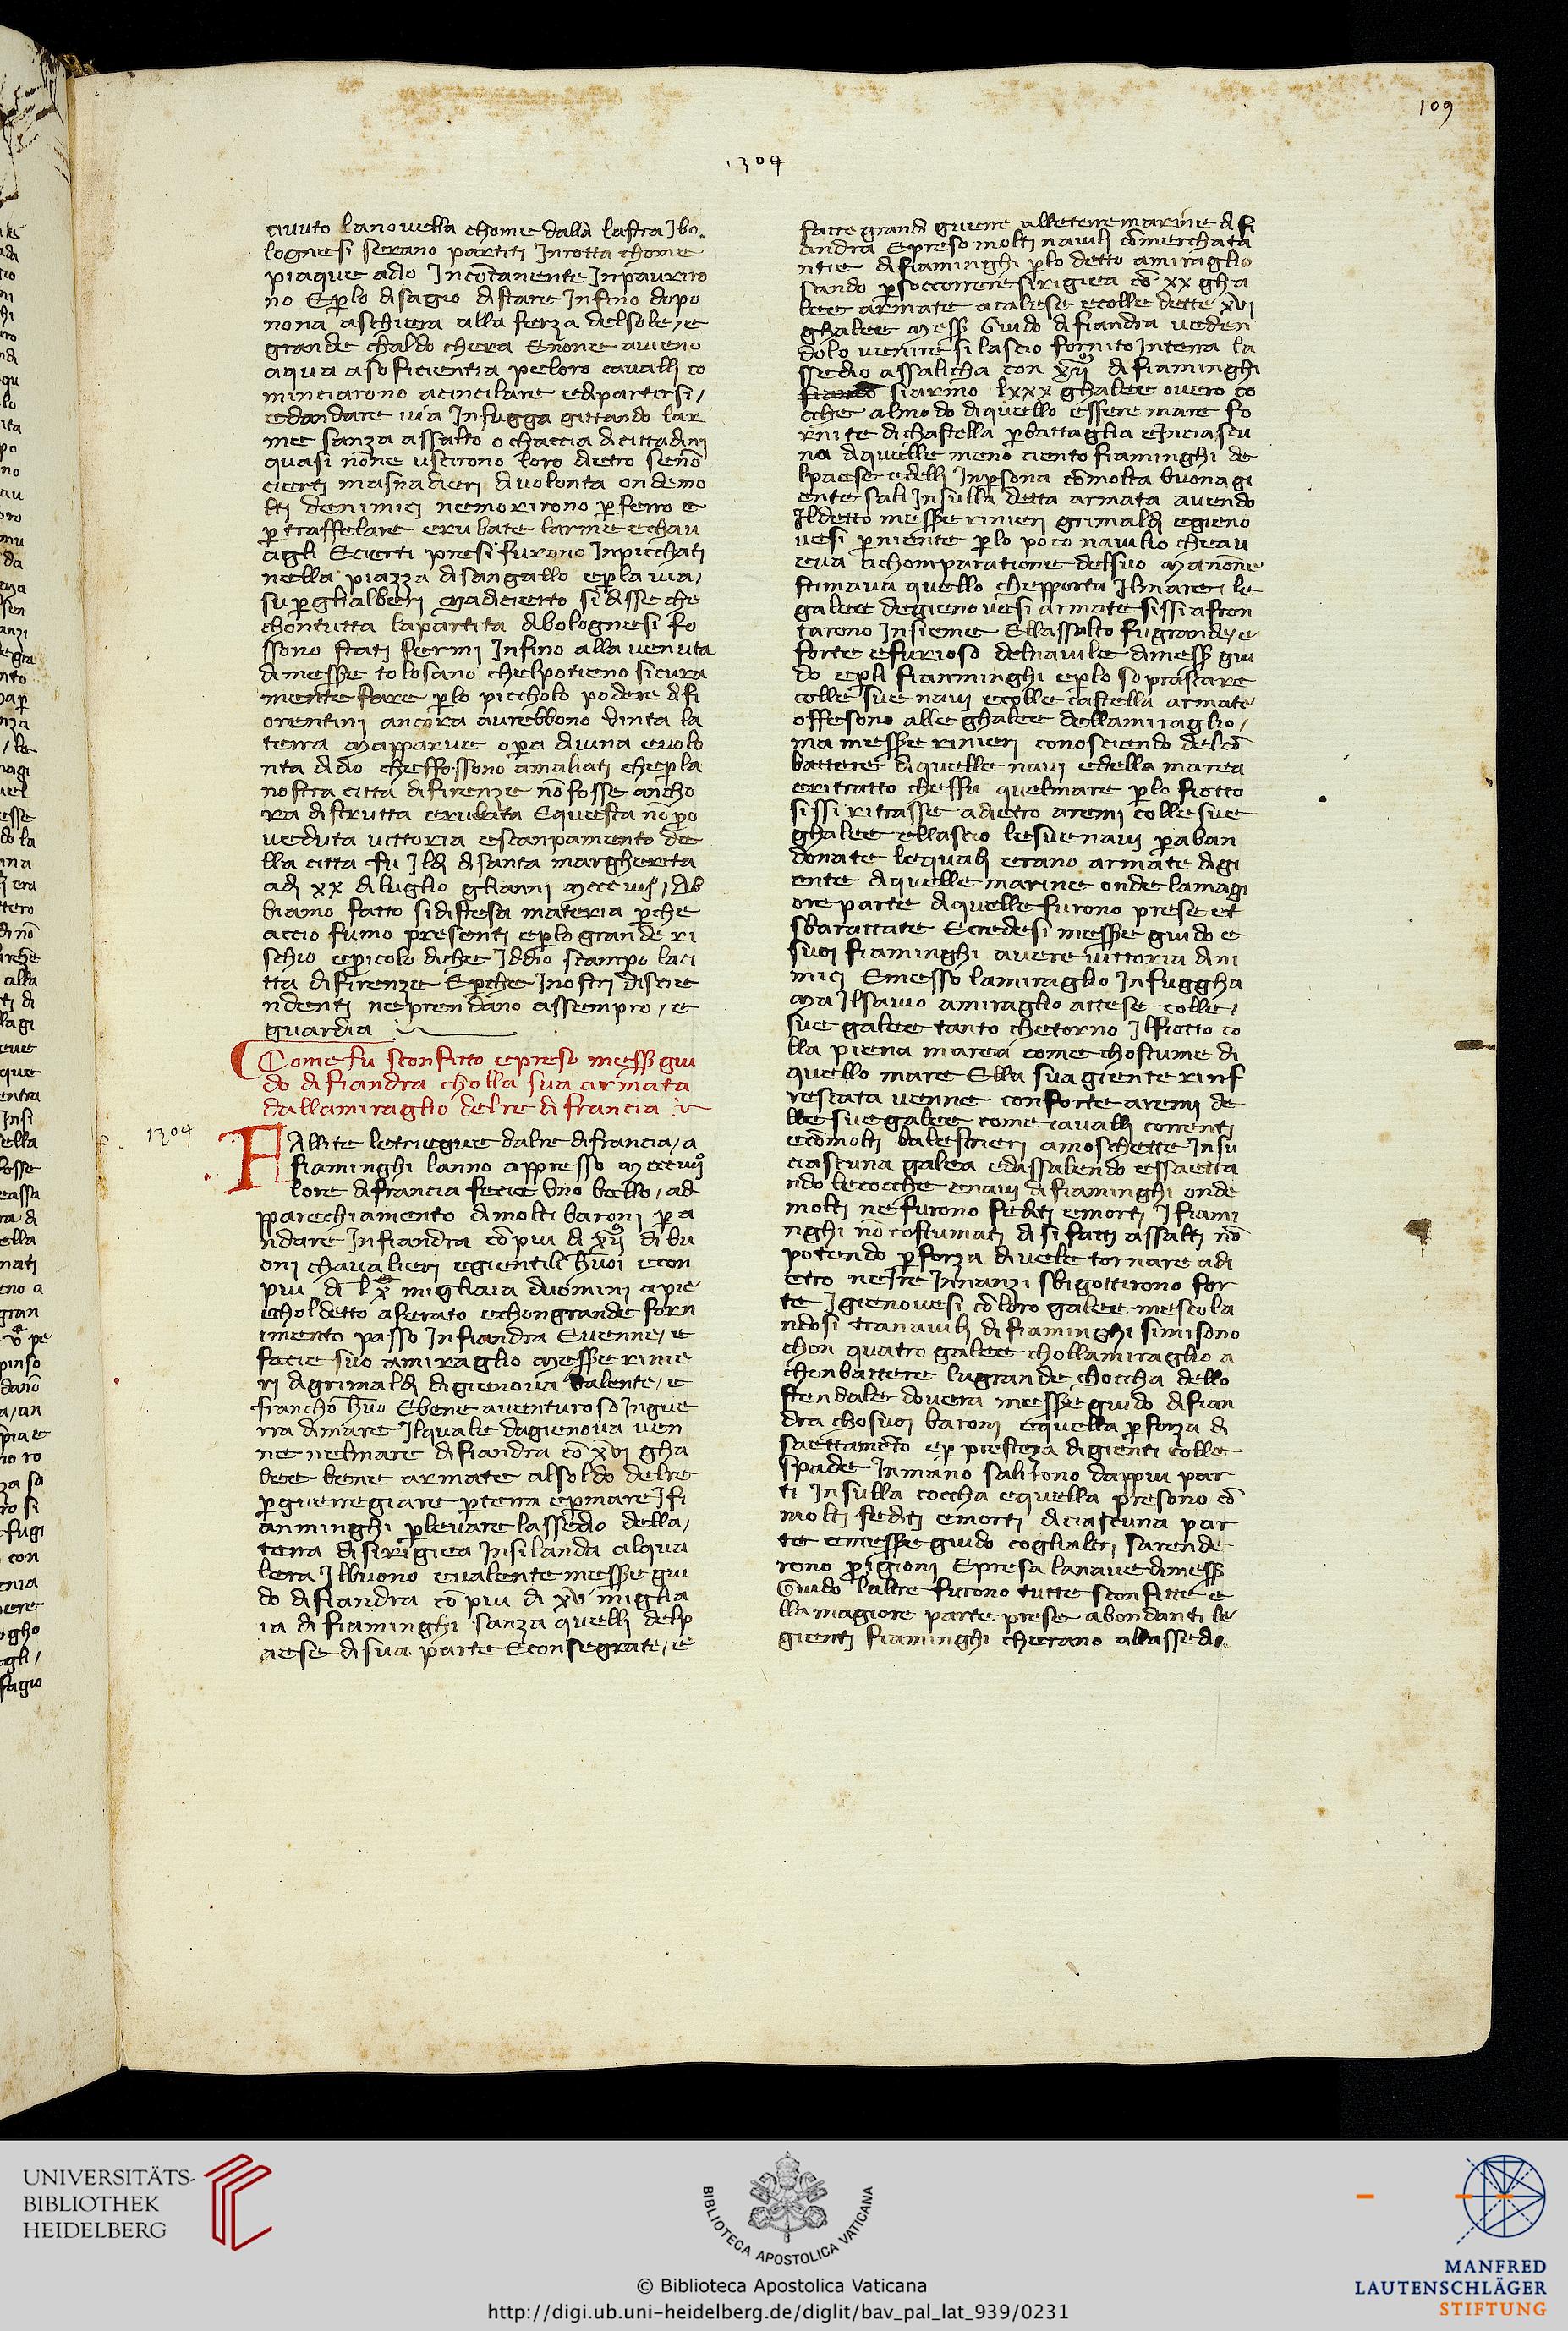 109
1304
avuto lanovella chome dalla lastra Ibo
lognesi serano partiti Inrotta chome
piaque adio Incōtanente Inpauriro
no Eplo disagio distare Infino dopo
nona aschiera alla ferza delsole / e
grande chaldo chera Enone aveno
aqua asoficientia peloro cavalli co
minciarono acincilare edipartirsi /
edandare via Infugga gittando lar
me sanza assalto o chaccia dicittadini
quasi nōne uscirono loro dietro senō
cierti masnadieri divolonta ondemo
lti denimici nemorirono pferro e
p traffelare erubate larme echau
agli Ecierti presi furono Inpicchati
nella piazza disangallo eplavia /
su pglialberi Madicierto sidisse che
chontutta lapartita dibolognesi fo
ssono stati fermi Infino alla venuta
dimesse tolosano chelpotieno sicura
mente fare plo picchola podere difi
orentini ancora aurebbono vinta la
terra Mapparve opa divina evolo
nta didio cheffossono amaliati chepla
nostra citta difirenze nō fosse ancho
ra distrutta erubata Equesta nō pro
veduta vittoria escanpamento de
lla citta fu Ildi disanta margherita
adi xx diluglio glianni Mccciiii / Ab
biamo fatto sidistesa materia pche
accio fumo presenti eplo grande ri
schio epicolo diche Iddio scampo laci
tta difirenze Epche Inostri discie
ndenti neprendano assempro / e
guardia
Come fu sconfitto epreso mess gui
do difiandra cholla sua armata
dallamiraglio delre difrancia
1304
FAllite letriegue dalre difrancia / a
fiaminghi lanno appresso Mccciiii
lore difrancia fecie uno bello / ad
pparechiamento dimolti baroni pa
ndare Infiandra cō piu di xii di bu
oni chavalieri egientili huoi econ
piu di lx migliaia duomini apie
echoldetto aferato echongrande forn
imento passo Infiandra Evenne / e
fecie suo amiraglio Messe rinie
ri digrimaldi digienova valente / e
francho huo Ebene aventuroso Ingue
rra dimare Ilquale dagienova ven
ne nelmare difiandra cō xvi gha
lee bene armate alsoldo delre
pguerregiare pterra epmare Ifi
anminghi plevare lassedio della /
terra disirigiea Insilanda alqua
lera Ilbuono evalente messe gui
do difiandra cō piu di xv miglia
ia difiaminghi sanza quelli delp
aese disua parte Econsegrate / e
fatte grandi guerre alleterre marine difi
andra Epreso molti navili cōmerchata
ntie difiaminghi plo detto amiraglio
sando psoccorrere sirigiea cō xx gha
lee armate acalese ecolle dette xvi
ghalee Mess Guido difiandra veden
dolo venire silascio fornito Interra la
ssedio assalicha con xii difiaminghi
siarmo lxxx ghalee overo co
cche almodo diquello essere mare fo
rnite dichastella pbattaglia eInciascu
na diquelle meno ciento fiaminghi de
lpaese edelli Inpsona cōmolta buonagi
ente sali Insulla detta armata avendo
Ildetto messe rinieri grimaldi egieno
vesi pniente plo poco navilio cheav
eva achomparatione delsuo Manone
stimava quello chepporta Ilmare / le
galee degienovesi armate sissiafron
tarono Insieme Ellassalto fugrande / e
forte efurioso delnavile dimess gui
do epli fianminghi eplo soprastare
colle sue navi ecolle castella armate
offesono alle ghalee dellamiraglio /
ma messe rinieri conosciendo delcō
battere diquelle navi edella marea
eritratto cheffu quelmare plo fiotto
sissi ritrasse adietro aremi colle sue
ghalee ellascio lesuenavi paban
donate lequali erano armate digi
ente diquelle marine onde lamagi
ore parte diquelle furono prese et
sbarattate Ecredesi messe guido e
suoi fiaminghi avere vittoria dini
mici Emesso lamiraglio Infuggha
Ma Ilsavio amiraglio attese colle /
sue galee tanto chetorno Ilfiotto co
lla piena marea come chostume di
quello mare Ella sua giente rinf
rescata venne conforte aremi de
lle sue galee come cavalli correnti
ecōmolti balestrieri amoschette Insu
ciascuna galea edassalendo essaetta
ndo lecocche enavi difiaminghi onde
molti nefurono fediti emorti Ifiami
nghi nō costumati disifatti assalti nō
potendo pforza divele tornare adi
etro neIre Innanzi sbigottirono for
te Igienovesi cōloro galee mescola
ndosi tranavili difiaminghi simisono
chon quatro galee chollamiraglio a
chonbattere lagrande choccha dello
stendale dovera messe guido difian
dra chosuoi baroni equella pforza di
saettamēto ep prestezza digienti colle
spade Inmano salirono dappiu par
ti Insulla coccha equella presono cō
molti fediti emorti diciascuna par
te emesse guido coglialtri sarende
rono prigioni Epresa lanave dimess
Guido laltre furono tutte sconfitte e
llamagiore parte prese abondanti le
gienti fiaminghi cherano allassedio
UNIVERSITÄTS-
BIBLIOTHEK
HEIDELBERG
BIBLIOTECA APOSTOLICA VATICANA
MANFRED
LAUTENSCHLÄGER
STIFTUNG
© Biblioteca Apostolica Vaticana
http://digi.ub.uni-heidelberg.de/diglit/bav_pal_lat_939/0231